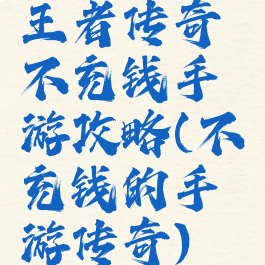 王者传奇
不充钱手
游攻略(不
充钱的手
游传奇)